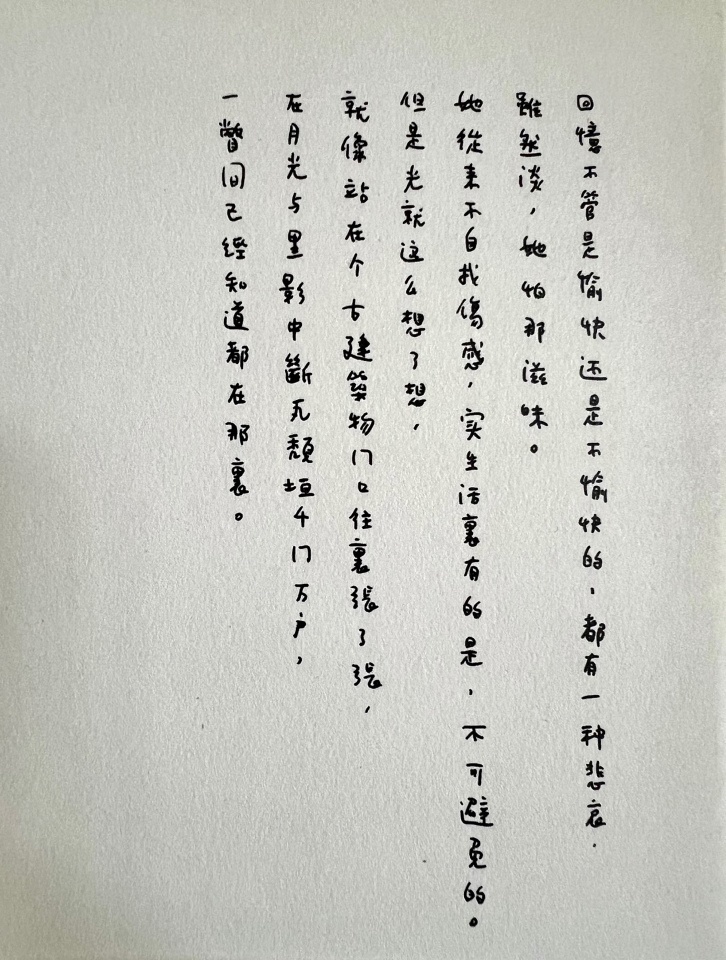 回憶不管是愉快还是不愉快的，都有一种悲哀.
雖然淡，她怕那滋味。
她從来不自找傷感，实生活裏有的是，不可避免的。
但是光就这么想了想，
就像站在个古建築物门口往裏張了張，
在月光与黑影中斷瓦頹垣千门万户，
一瞥间已經知道都在那裏。